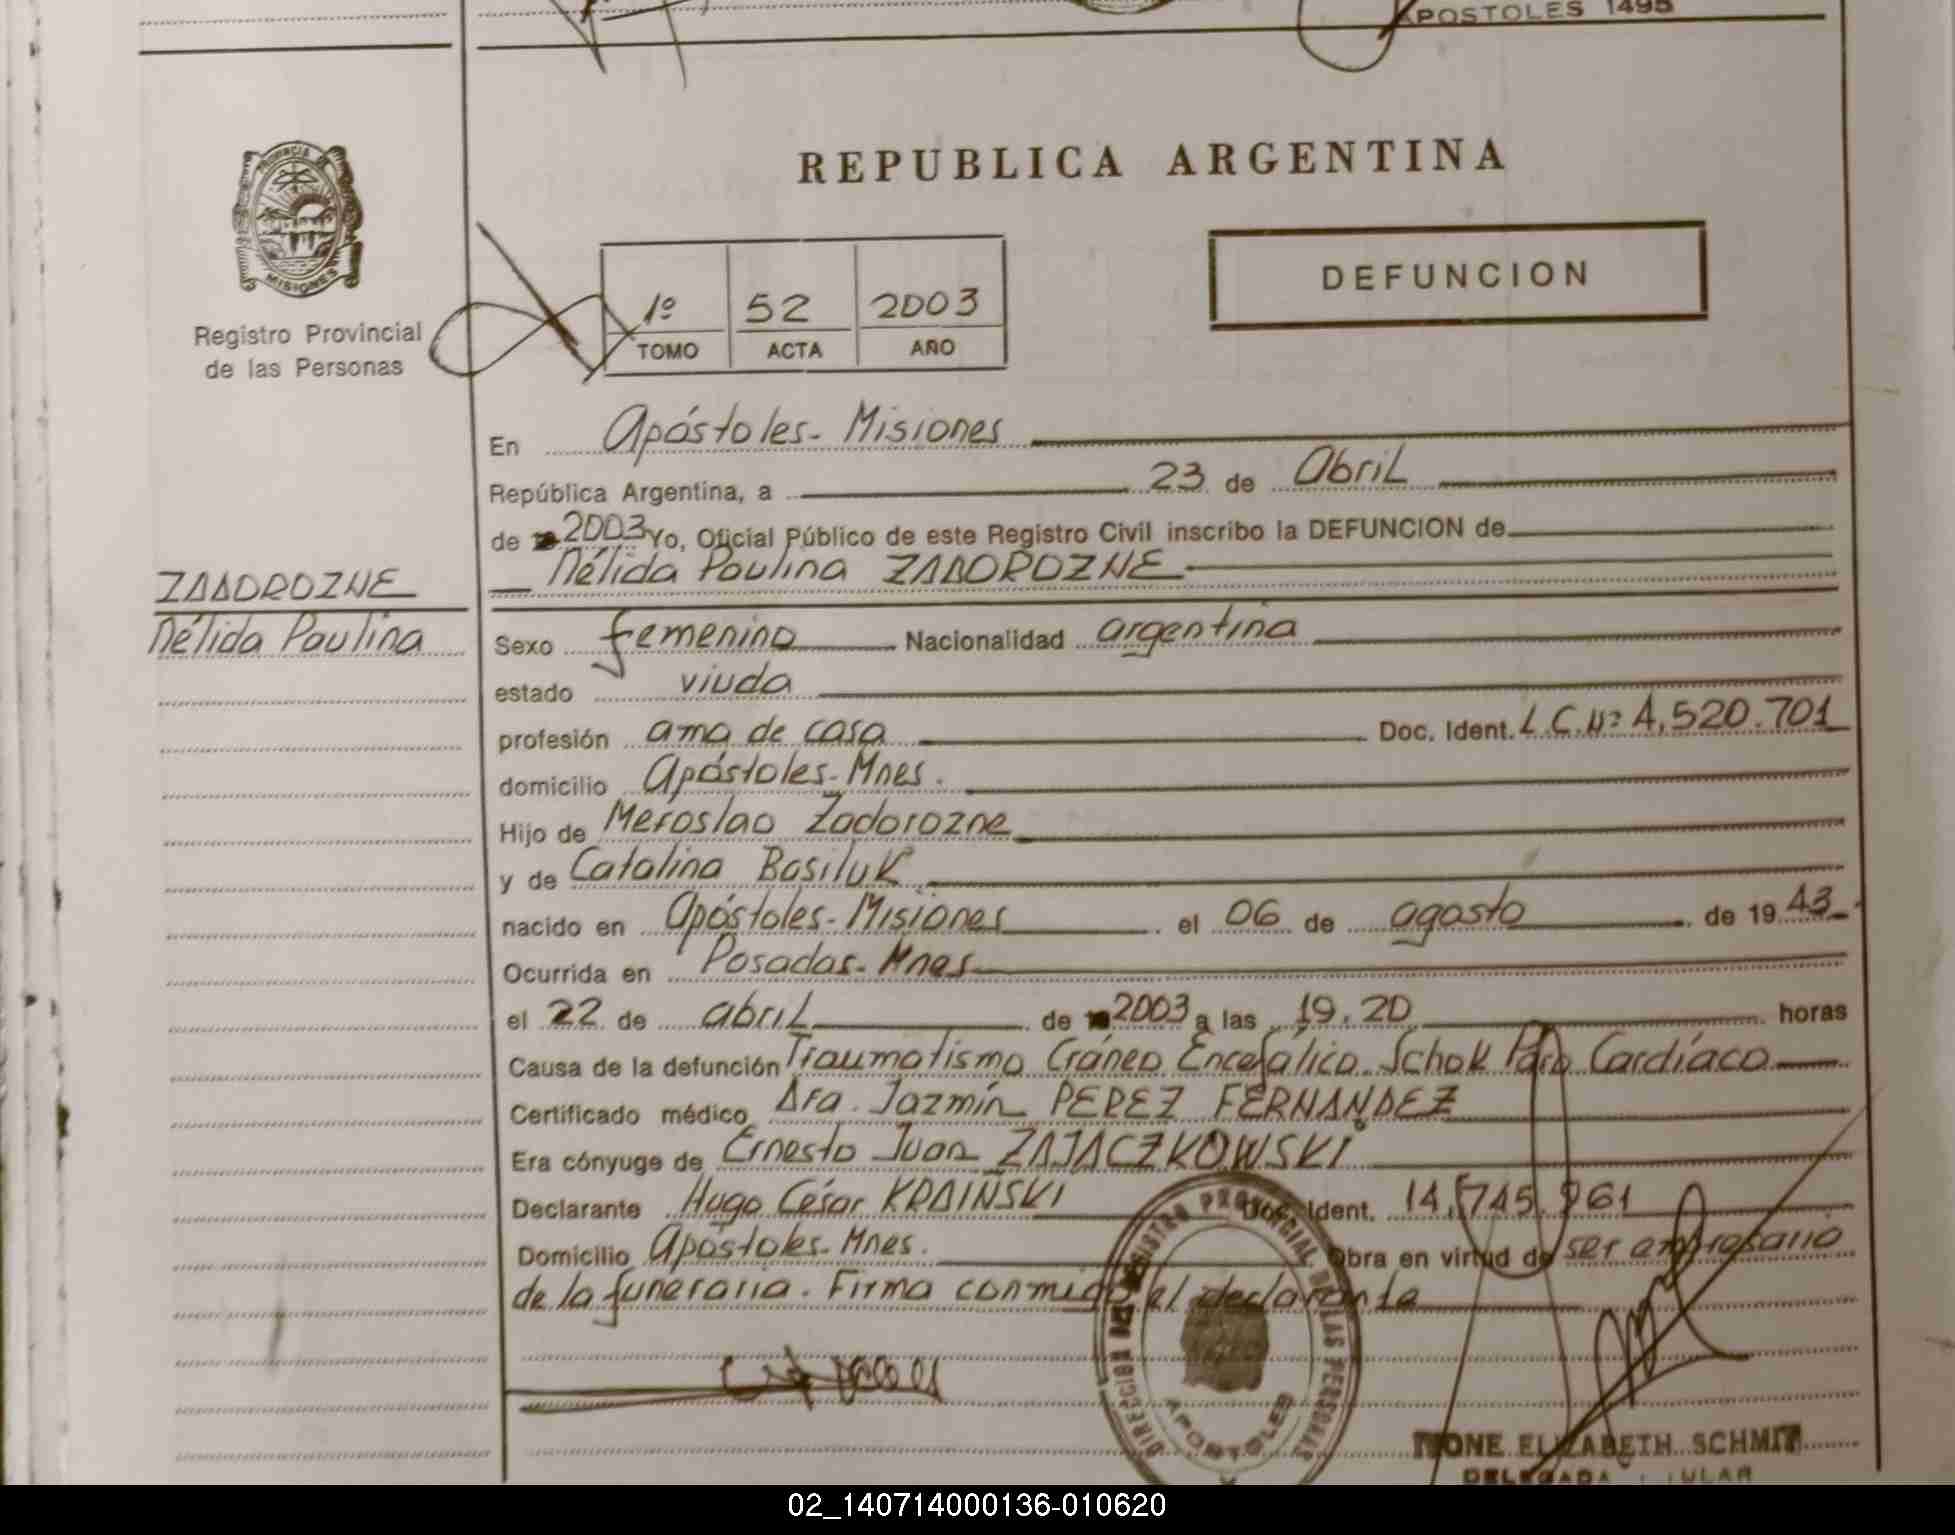 APOSTOLES 1495
PROVINCIA DE
MISIONES
Registro Provincial
de las Personas
REPUBLICA ARGENTINA
DEFUNCION
1º 52 2003
TOMO ACTA AÑO
En Apóstoles - Misiones
República Argentina, a 23 de Abril
de 2003 Yo, Oficial Público de este Registro Civil inscribo la DEFUNCION de
Nélida Paulina ZADOROZNE
ZADOROZNE
Nélida Paulina
Sexo femenino Nacionalidad argentina
estado viuda
profesión ama de casa Doc. Ident. L.C. Nº 4.520.701
domicilio Apóstoles - Mnes.
Hijo de Meroslao Zadorozne
y de Catalina Basiluk
nacido en Apóstoles - Misiones el 06 de agosto de 1943
Ocurrida en Posadas - Mnes
el 22 de abril de 2003 a las 19.20 horas
Causa de la defunción Traumatismo Cráneo Encefálico. Schok Paro Cardíaco
Certificado médico Dra. Jazmín PEREZ FERNANDEZ
Era cónyuge de Ernesto Juan ZAJACZKOWSKI
Declarante Hugo César KRAINSKI Doc. Ident. 14.745.961
Domicilio Apóstoles - Mnes. Obra en virtud de ser empresario
de la funeraria. Firma conmigo el declarante
DIRECCION DEL REGISTRO PROVINCIAL DE LAS PERSONAS
APOSTOLES
IVONE ELIZABETH SCHMIT
DELEGADA TITULAR
02_140714000136-010620